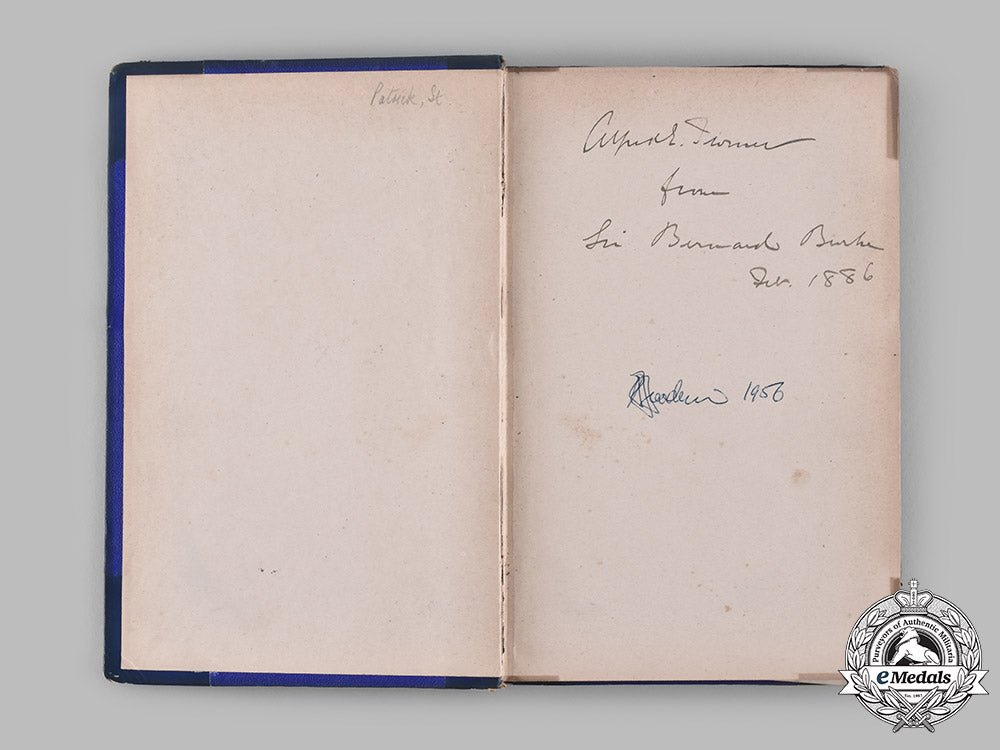 Patrick, St.
Alfred E. Turner
from
Sir Bernard Burke
Feb. 1886
1956
Purveyors of Authentic Militaria
eMedals